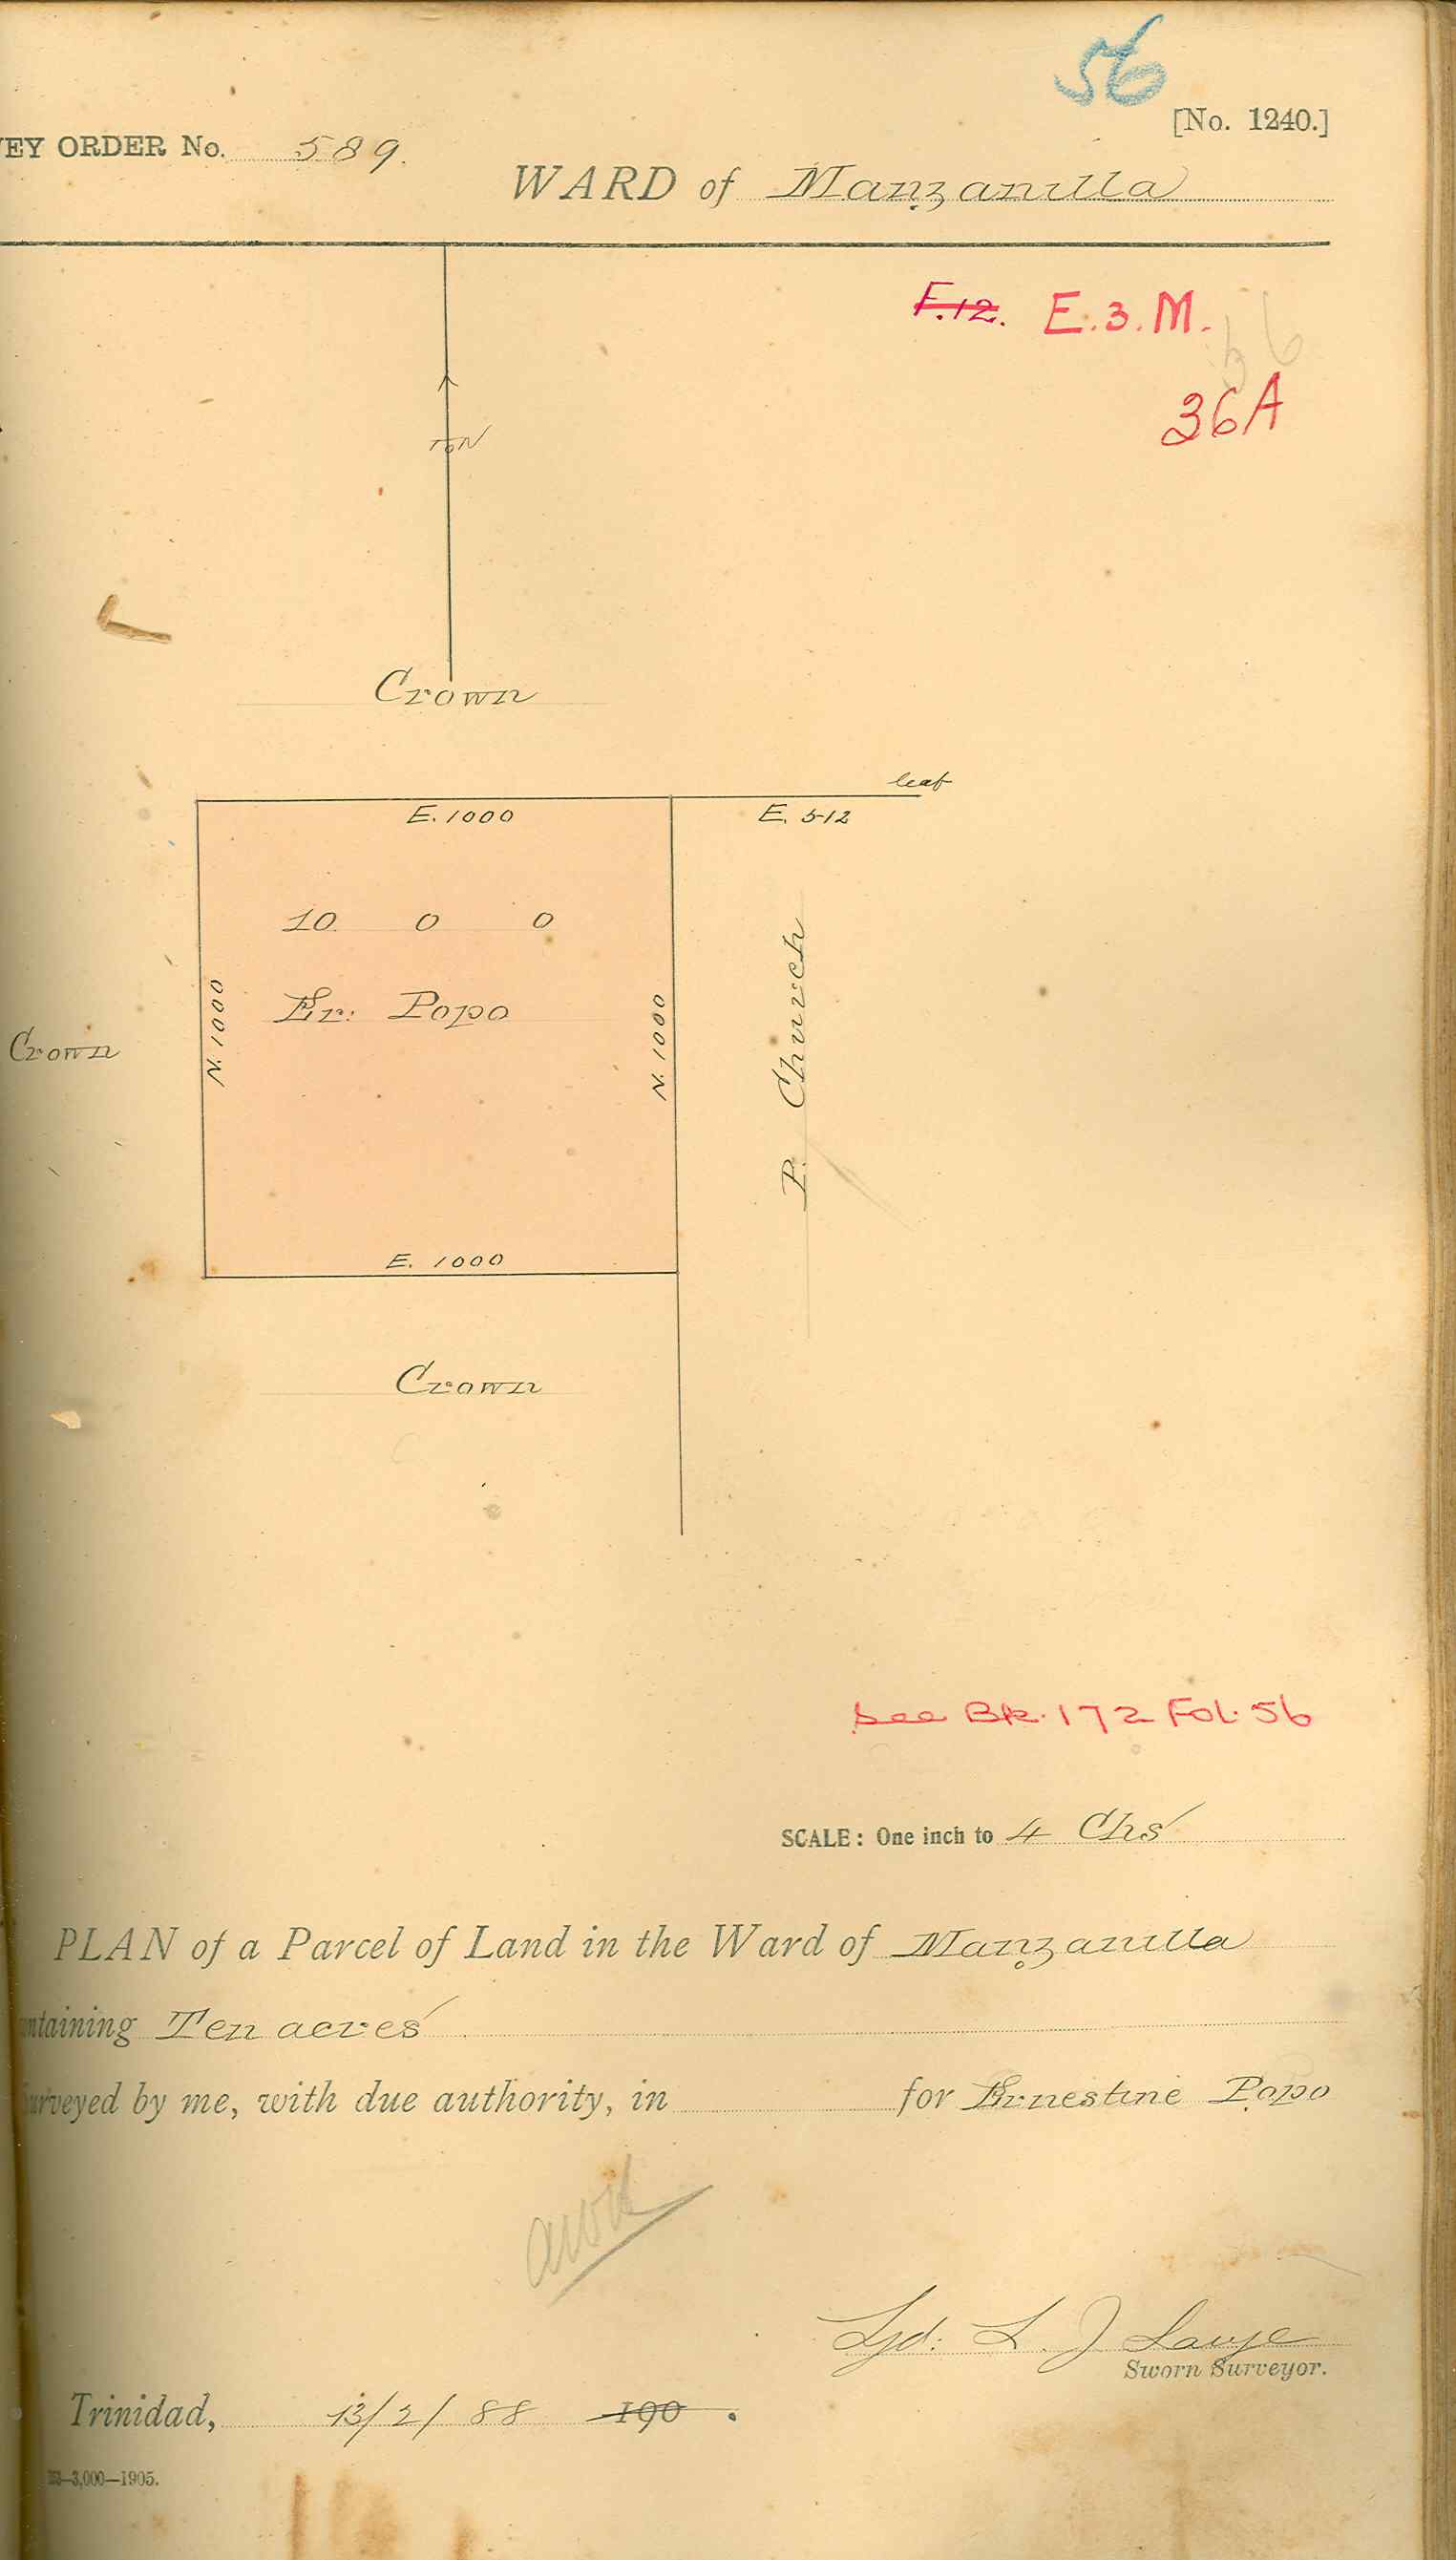 56
[No. 1240.]
VEY ORDER No. 589.
WARD of Manzanilla
F.12. E.3.M.
56
36A
T N
Crown
leaf
E. 1000
E. 512
10 0 0
Er: Popo
N. 1000
N. 1000
P. Church
Crown
E. 1000
Crown
see Bk. 172 Fol. 56
SCALE: One inch to 4 Chs
PLAN of a Parcel of Land in the Ward of Manzanilla
ntaining Ten acres
urveyed by me, with due authority, in for Ernestine Popo
Sgd: L. J Lange
Sworn Surveyor.
Trinidad, 13/2/88 190 .
3,000—1905.